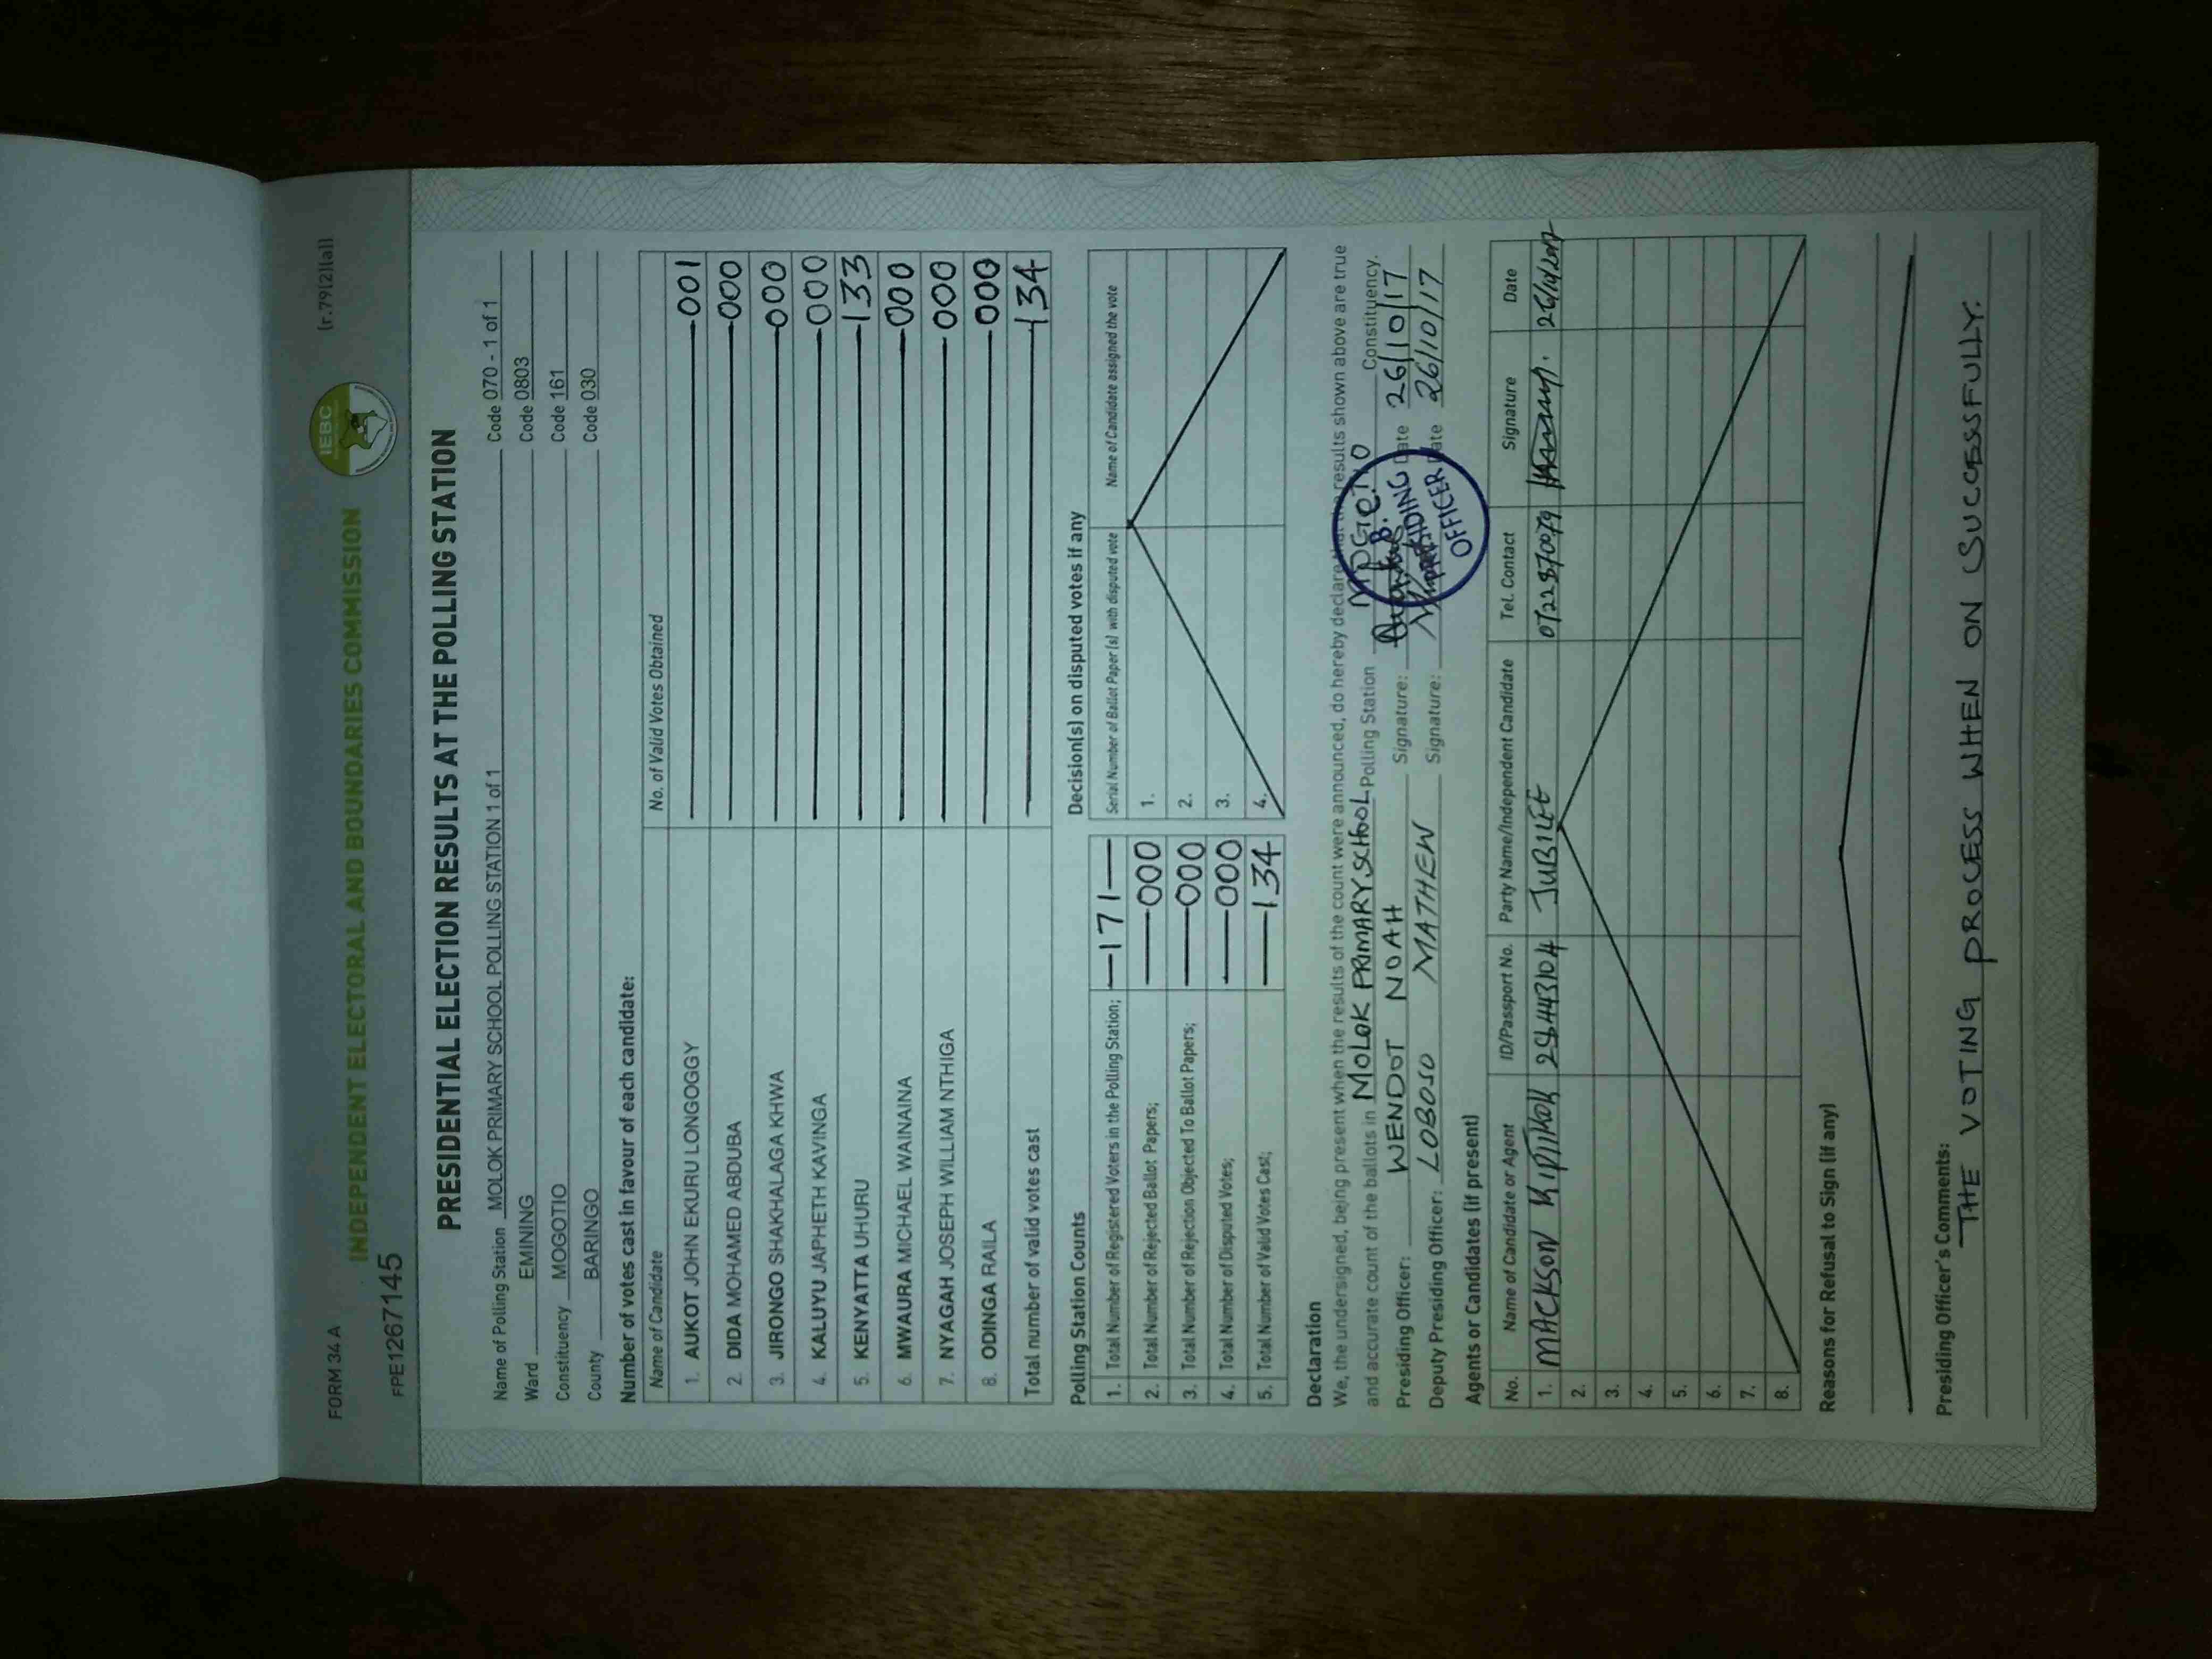 FORM 34 A
(r.79(2)(a))
IEBC
INDEPENDENT ELECTORAL AND BOUNDARIES COMMISSION
FPE1267145
PRESIDENTIAL ELECTION RESULTS AT THE POLLING STATION
Name of Polling Station MOLOK PRIMARY SCHOOL POLLING STATION 1 of 1 Code 070 - 1 of 1
Ward EMINING Code 0803
Constituency MOGOTIO Code 161
County BARINGO Code 030
Number of votes cast in favour of each candidate:
Name of Candidate No. of Valid Votes Obtained
1. AUKOT JOHN EKURU LONGOGGY 001
2. DIDA MOHAMED ABDUBA 000
3. JIRONGO SHAKHALAGA KHWA 000
4. KALUYU JAPHETH KAVINGA 000
5. KENYATTA UHURU 133
6. MWAURA MICHAEL WAINAINA 000
7. NYAGAH JOSEPH WILLIAM NTHIGA 000
8. ODINGA RAILA 000
Total number of valid votes cast 134
Polling Station Counts
1. Total Number of Registered Voters in the Polling Station; 171
2. Total Number of Rejected Ballot Papers; 000
3. Total Number of Rejection Objected To Ballot Papers; 000
4. Total Number of Disputed Votes; 000
5. Total Number of Valid Votes Cast; 134
Decision(s) on disputed votes if any
Serial Number of Ballot Paper (s) with disputed vote Name of Candidate assigned the vote
1.
2.
3.
4.
Declaration
We, the undersigned, being present when the results of the count were announced, do hereby declare that the results shown above are true
and accurate count of the ballots in MOLOK PRIMARY SCHOOL Polling Station MOGOTIO Constituency.
Presiding Officer: WENDOT NOAH Signature: Date 26/10/17
Deputy Presiding Officer: LOBOSO MATHEW Signature: Date 26/10/17
PRESIDING
OFFICER
Agents or Candidates (if present)
No. Name of Candidate or Agent ID/Passport No. Party Name/Independent Candidate Tel. Contact Signature Date
1. MACKSON JUBILEE 26/10/2017
2.
3.
4.
5.
6.
7.
8.
Reasons for Refusal to Sign (if any)
Presiding Officer's Comments:
THE VOTING PROCESS WHEN ON SUCCESSFULLY.